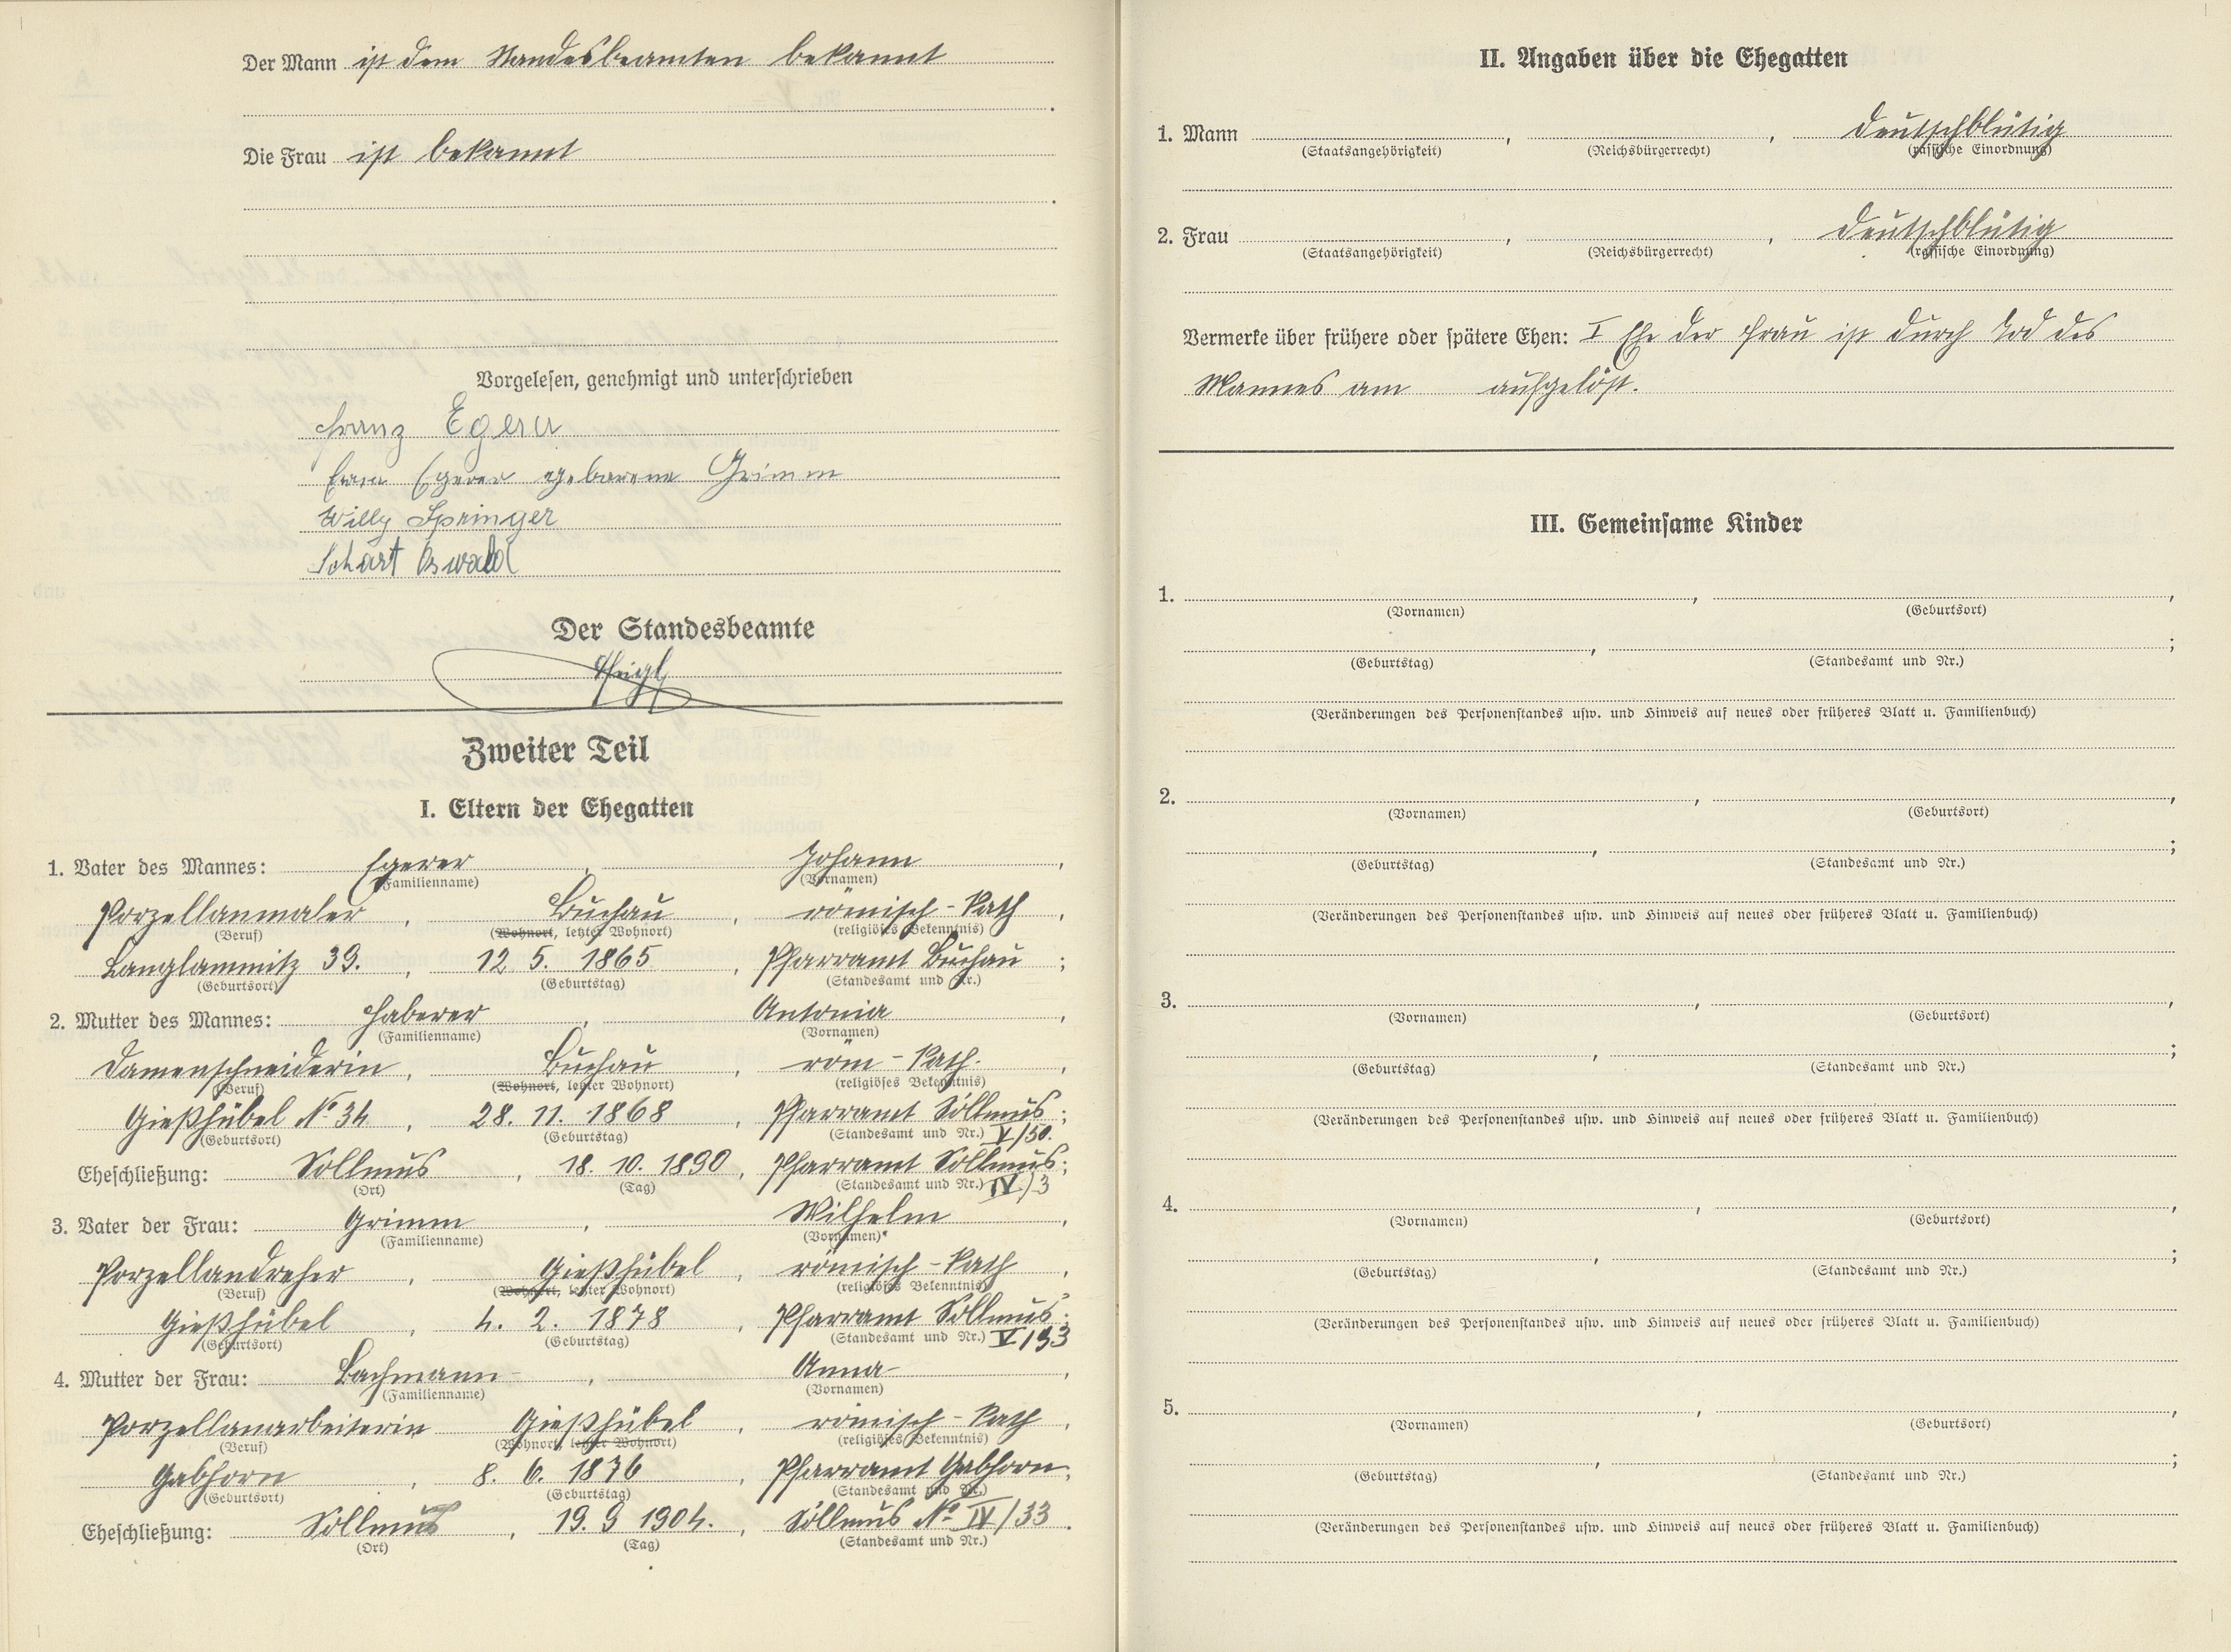 Der Mann ist dem Standesbeamten bekannt
Die Frau ist bekannt
Vorgelesen, genehmigt und unterschrieben
Franz Egerer
Egerer geborene Grimm
Willy Springer
Schart Oswald
Der Standesbeamte
Zweiter Teil
I. Eltern der Ehegatten
1. Vater des Mannes: Egerer, Johann,
(Familienname) (Vornamen)
Porzellanmaler, Buchau, römisch-kath,
(Beruf) (Wohnort, letzter Wohnort) (religiöses Bekenntnis)
Langlammitz 39., 12 5. 1865, Pfarramt Buchau;
(Geburtsort) (Geburtstag) (Standesamt und Nr.)
2. Mutter des Mannes: Haberer, Antonia,
(Familienname) (Vornamen)
Damenschneiderin, Buchau, röm-kath.,
(Beruf) (Wohnort, letzter Wohnort) (religiöses Bekenntnis)
Gießhübel No 34, 28. 11. 1868, Pfarramt Sollmus;
(Geburtsort) (Geburtstag) (Standesamt und Nr.) V/50.
Eheschließung: Sollmus, 18. 10. 1890, Pfarramt Sollmus;
(Ort) (Tag) (Standesamt und Nr.) IV/3
3. Vater der Frau: Grimm, Wilhelm,
(Familienname) (Vornamen)
Porzellandreher, Gießhübel, römisch-kath,
(Beruf) (Wohnort, letzter Wohnort) (religiöses Bekenntnis)
Gießhübel, 4. 2. 1878, Pfarramt Sollmus;
(Geburtsort) (Geburtstag) (Standesamt und Nr.) V/93
4. Mutter der Frau: Bachmann, Anna,
(Familienname) (Vornamen)
Porzellanarbeiterin Gießhübel, römisch-kath,
(Beruf) (Wohnort, letzter Wohnort) (religiöses Bekenntnis)
Gabhorn, 8. 6. 1876, Pfarramt Gabhorn;
(Geburtsort) (Geburtstag) (Standesamt und Nr.)
Eheschließung: Sollmus, 19. 9 1904., Sollmus No IV/33.
(Ort) (Tag) (Standesamt und Nr.)
II. Angaben über die Ehegatten
1. Mann , , deutschblütig
(Staatsangehörigkeit) (Reichsbürgerrecht) (rassische Einordnung)
2. Frau , , deutschblütig
(Staatsangehörigkeit) (Reichsbürgerrecht) (rassische Einordnung)
Vermerke über frühere oder spätere Ehen: I Ehe der Frau ist durch Tod des
Mannes am aufgelöst.
III. Gemeinsame Kinder
1. , ,
(Vornamen) (Geburtsort)
, ;
(Geburtstag) (Standesamt und Nr.)
(Veränderungen des Personenstandes usw. und Hinweis auf neues oder früheres Blatt u. Familienbuch)
2. , ,
(Vornamen) (Geburtsort)
, ;
(Geburtstag) (Standesamt und Nr.)
(Veränderungen des Personenstandes usw. und Hinweis auf neues oder früheres Blatt u. Familienbuch)
3. , ,
(Vornamen) (Geburtsort)
, ;
(Geburtstag) (Standesamt und Nr.)
(Veränderungen des Personenstandes usw. und Hinweis auf neues oder früheres Blatt u. Familienbuch)
4. , ,
(Vornamen) (Geburtsort)
, ;
(Geburtstag) (Standesamt und Nr.)
(Veränderungen des Personenstandes usw. und Hinweis auf neues oder früheres Blatt u. Familienbuch)
5. , ,
(Vornamen) (Geburtsort)
, ;
(Geburtstag) (Standesamt und Nr.)
(Veränderungen des Personenstandes usw. und Hinweis auf neues oder früheres Blatt u. Familienbuch)